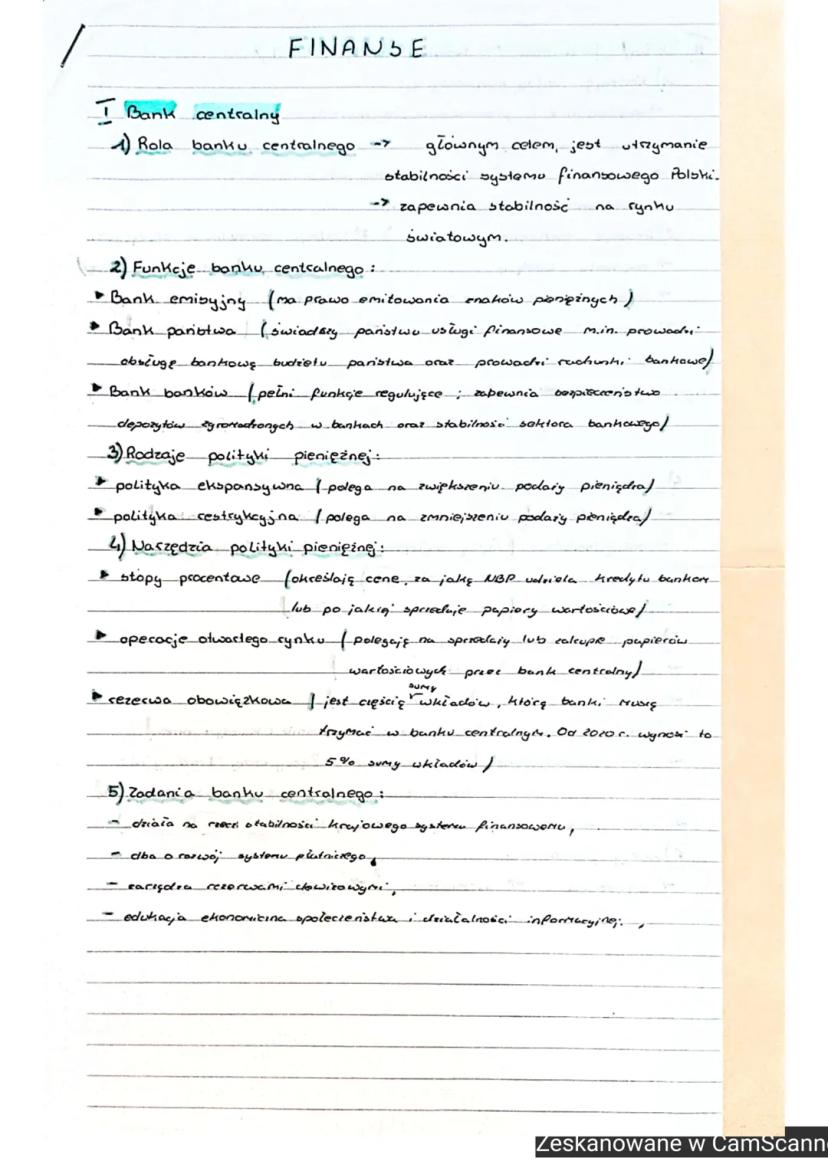 FINANSE
I Bank centralny
1) Rola banku centralnego -> głównym celem, jest utrzymanie
stabilności systemu finansowego Polski.
-> zapewnia stabilność na rynku
światowym.
2) Funkcje banku centralnego:
▸ Bank emisyjny (ma prawo emitowania znaków pieniężnych)
▸ Bank państwa (świadczy państwu usługi finansowe m.in. prowadzi
obsługę bankową budżetu państwa oraz prowadzi rachunki bankowe)
▸ Bank banków (pełni funkcje regulujące; zapewnia bezpieczeństwo
depozytów zgromadzonych w bankach oraz stabilność sektora bankowego)
3) Rodzaje polityki pieniężnej:
▸ polityka ekspansywna (polega na zwiększeniu podaży pieniądza)
▸ polityka restrykcyjna (polega na zmniejszeniu podaży pieniądza)
4) Narzędzia polityki pieniężnej:
▸ stopy procentowe (określają cenę, za jaką NBP udziela kredytu bankom
lub po jakiej sprzedaje papiery wartościowe)
▸ operacje otwartego rynku (polegają na sprzedaży lub zakupie papierów
wartościowych przez bank centralny)
▸ rezerwa obowiązkowa (jest częścią sumy wkładów, którą banki muszą
trzymać w banku centralnym. Od 2010 r. wynosi to
5% sumy wkładów)
5) Zadania banku centralnego:
- działa na rzecz stabilności krajowego systemu finansowemu,
- dba o rozwój systemu płatniczego,
- zarządza rezerwami dewizowymi,
- edukacja ekonomiczna społeczeństwa i działalności informacyjnej.,
Zeskanowane w CamScann